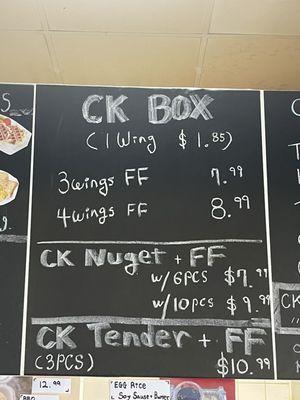 CK BOX
(1 Wing $1.85)
3 wings FF 7.99
4 wings FF 8.99
CK Nuget + FF
w/ 6 PCS $7.99
w/ 10 PCS $9.99
CK Tender + FF
(3 PCS) $10.99
12.99
BBQ
EGG RICE
Soy Sause + Burter
CK